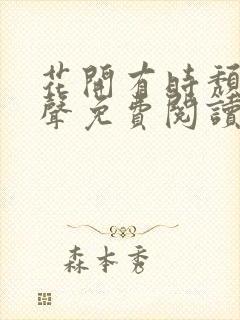 花開有時頹
聲免費閱讀
森本秀